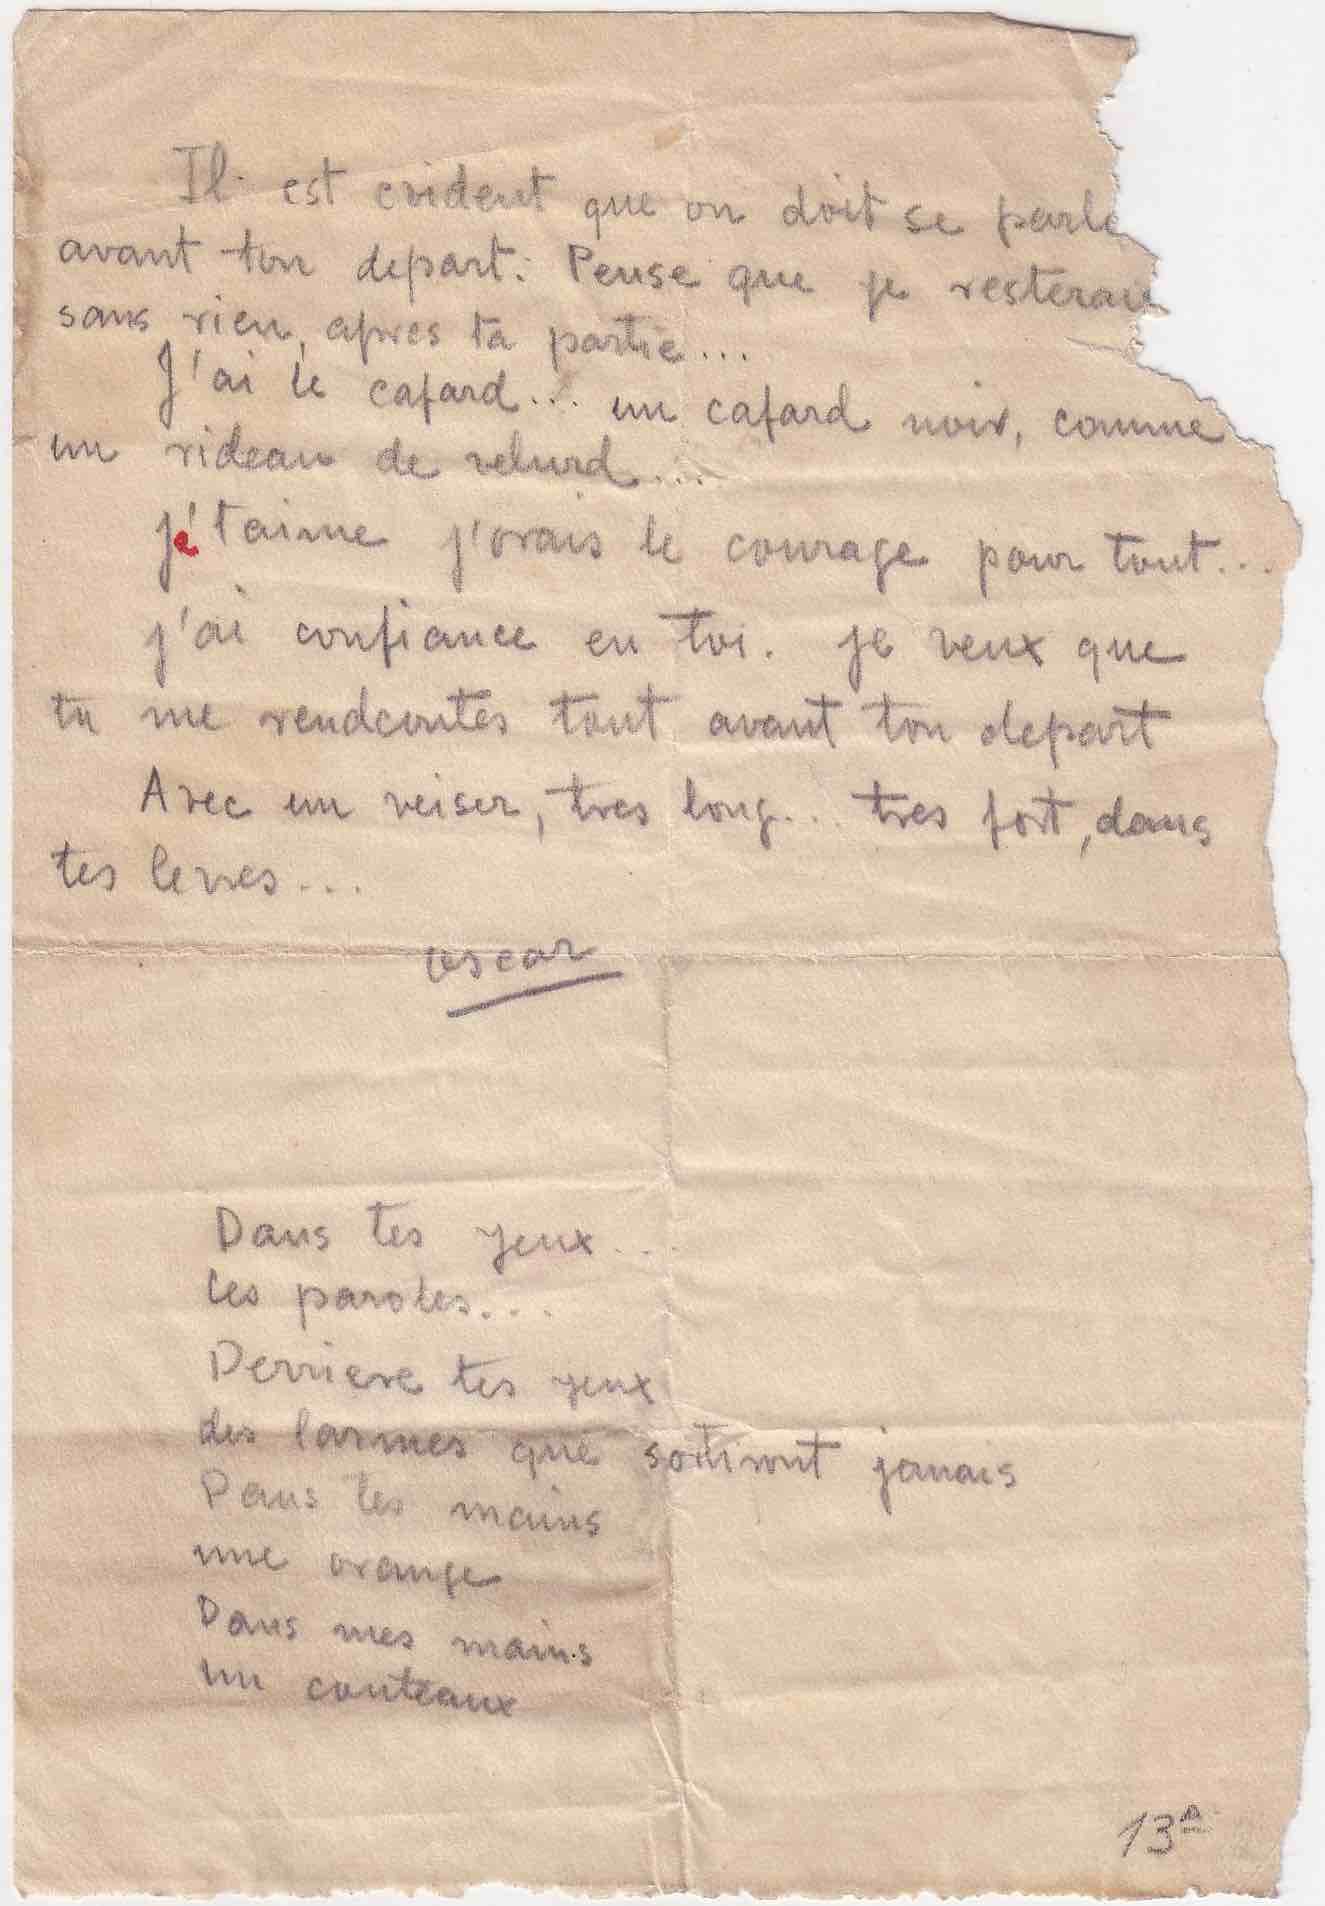 Il est evident que on doit se parle
avant ton depart. Pense que je resterau
sans rien, apres ta partie...
J'ai le cafard... un cafard noir, comme
un rideau de velurd...
je t'aime j'orais le courage pour tout...
j'ai confiance en toi. je veux que
tu me rendcontes tout avant ton depart
Avec un veiser, tres long... tres fort, dans
tes levres...
Oscar
Dans tes yeux...
les paroles...
Derriere tes yeux
des larmes que sortiront jamais
Dans tes mains
une orange
Dans mes mains
un couteaux
13ᴬ